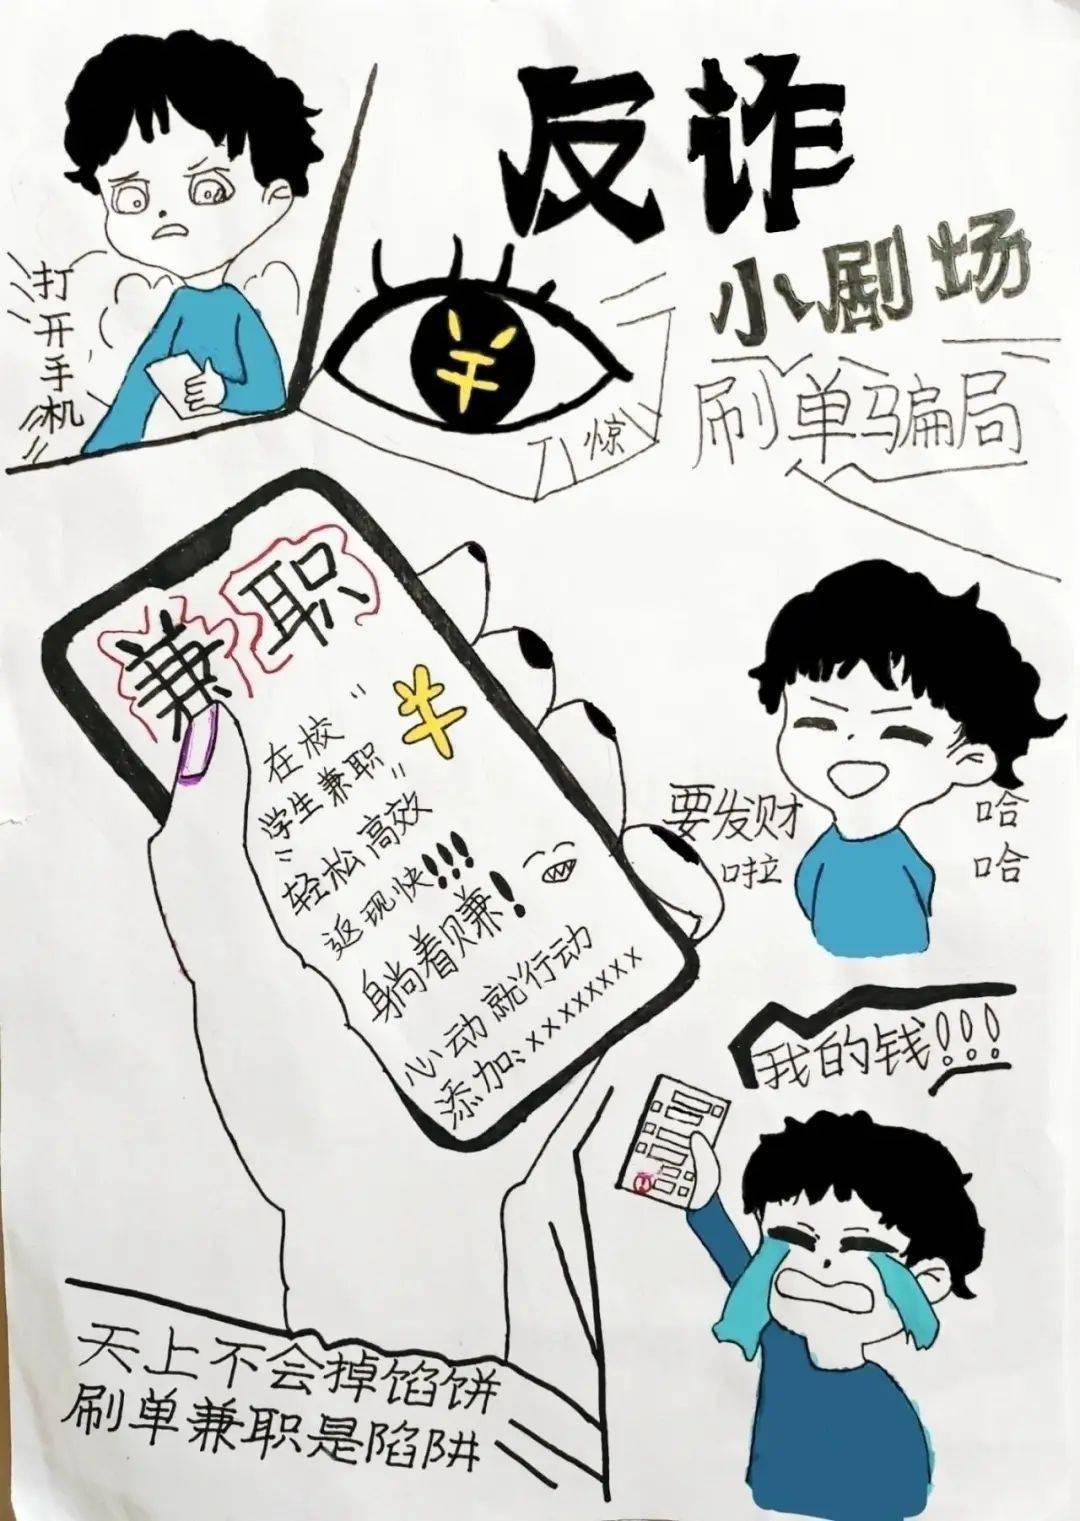 反诈
小剧场
刷单骗局
打开手机
惊
兼职
在校
"学生兼职"
轻松高效
返现快!!!
躺着赚!
心动就行动
添加:xxxxxxxxx
要发财
啦
哈
哈
我的钱!!!
天上不会掉馅饼
刷单兼职是陷阱